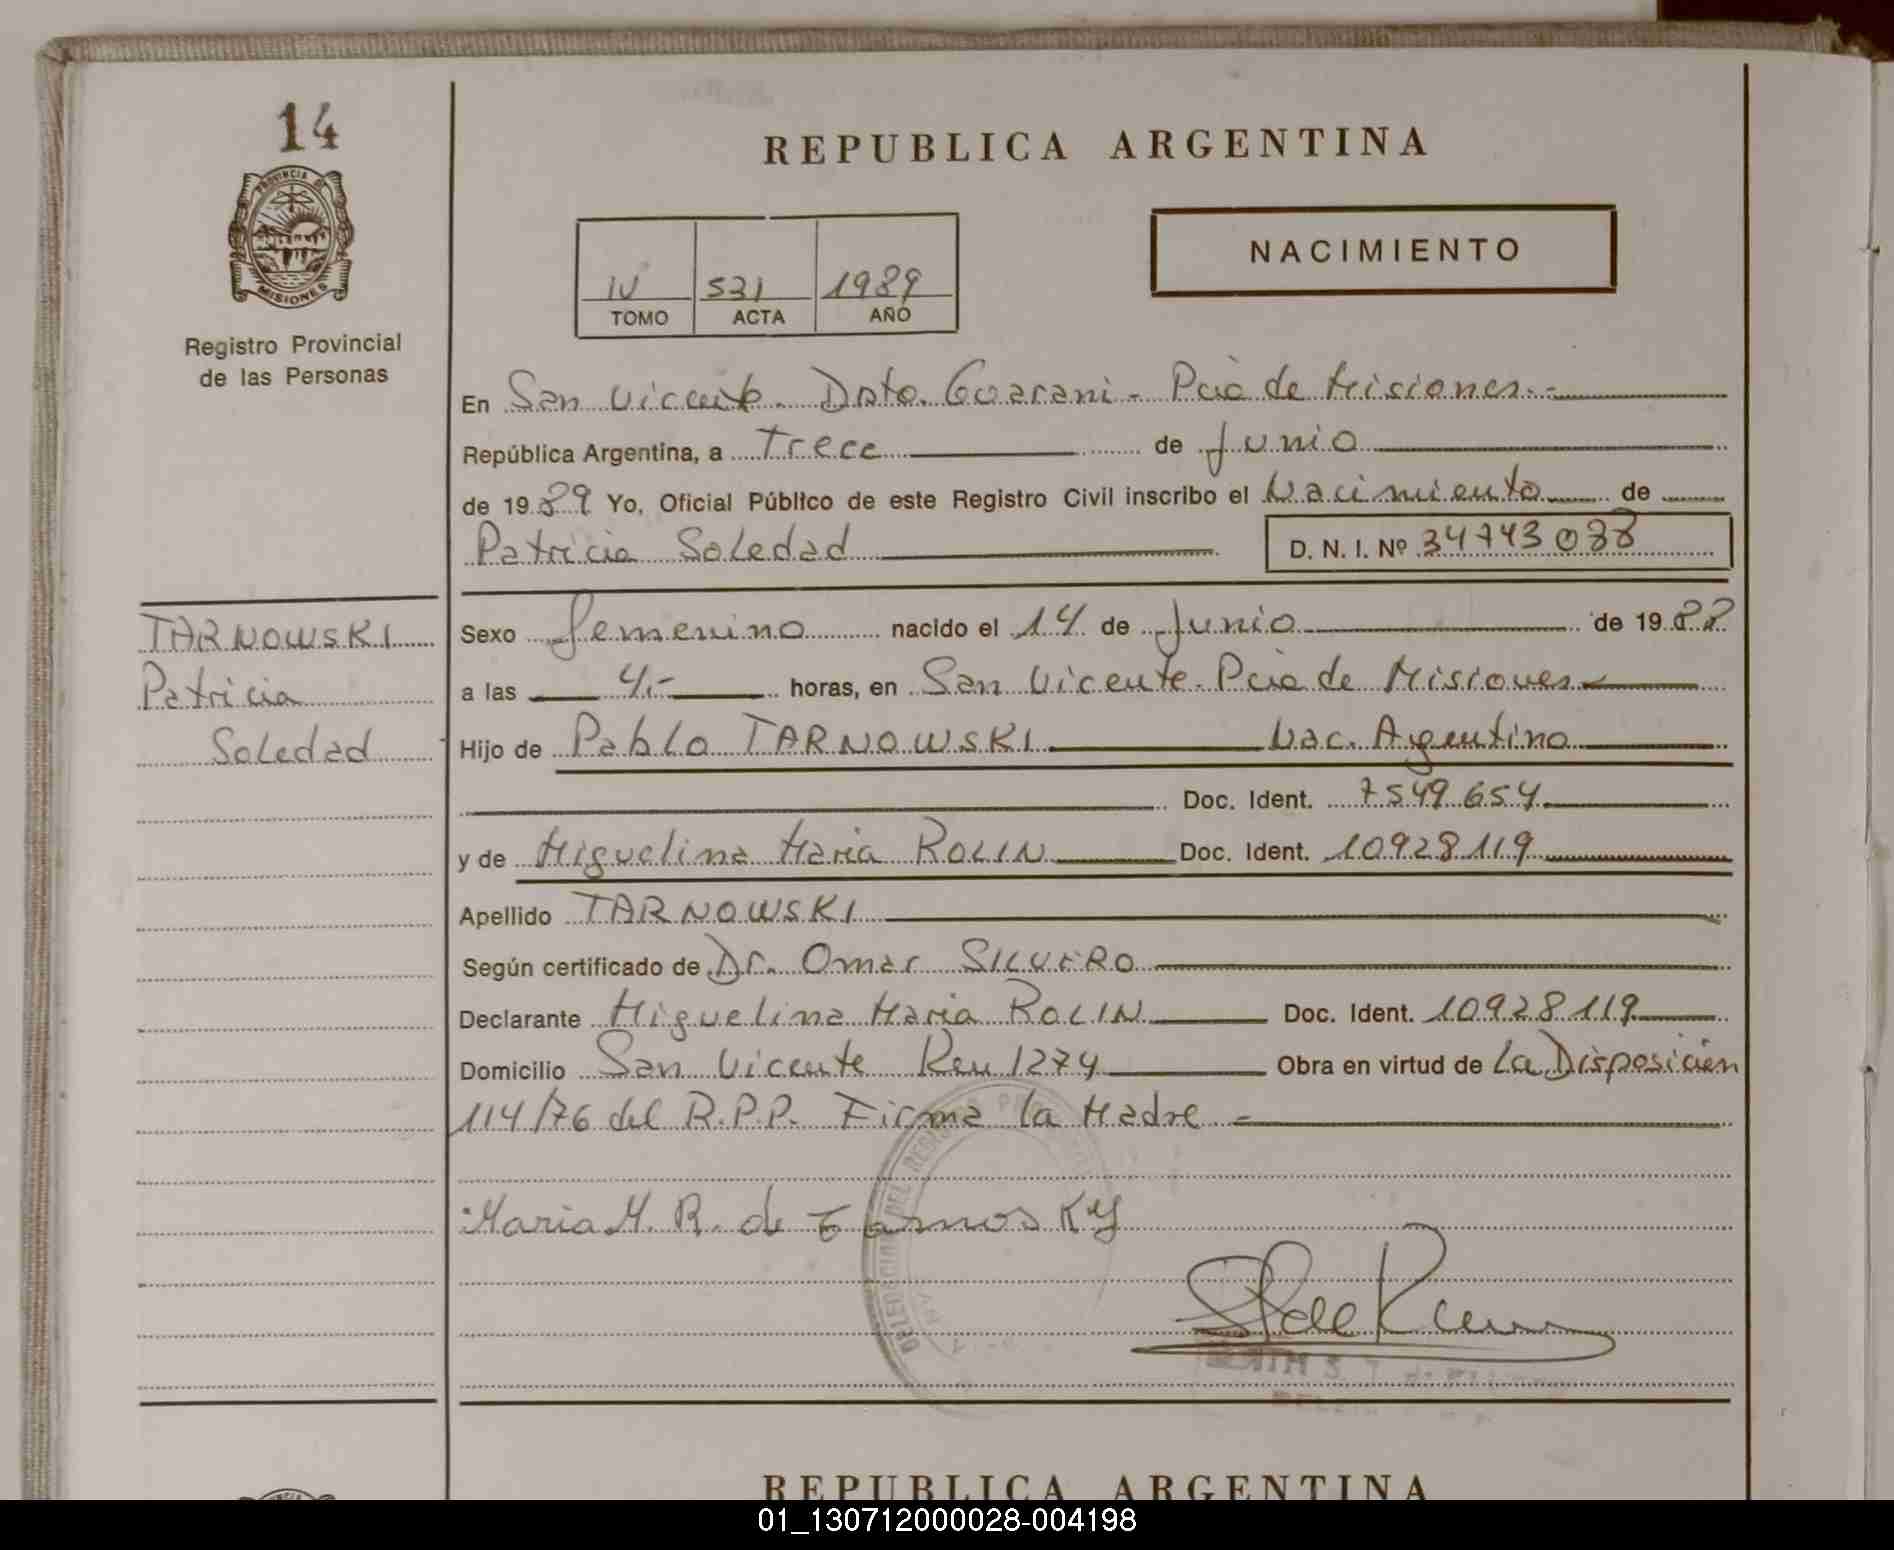 14
REPUBLICA ARGENTINA
PROVINCIA DE
MISIONES
Registro Provincial
de las Personas
NACIMIENTO
IV 531 1989
TOMO ACTA AÑO
En San Vicente. Dpto. Guarani - Pcia de Misiones.-
República Argentina, a Trece de Junio
de 1989 Yo, Oficial Público de este Registro Civil inscribo el Nacimiento de
Patricia Soledad D. N. I. Nº 34743088
TARNOWSKI
Patricia
Soledad
Sexo Femenino nacido el 14 de Junio de 1988
a las 4.- horas, en San Vicente. Pcia de Misiones
Hijo de Pablo TARNOWSKI Nac. Argentino
Doc. Ident. 7549654
y de Miguelina Maria ROLIN Doc. Ident. 10928119
Apellido TARNOWSKI
Según certificado de Dr. Omar SILVERO
Declarante Miguelina Maria ROLIN Doc. Ident. 10928119
Domicilio San Vicente Km 1274 Obra en virtud de La Disposicion
114/76 del R.P.P. Firma la Madre -
Maria M. R. de Tarnosky
DELEGACION DEL REGISTRO
REPUBLICA ARGENTINA
01_130712000028-004198